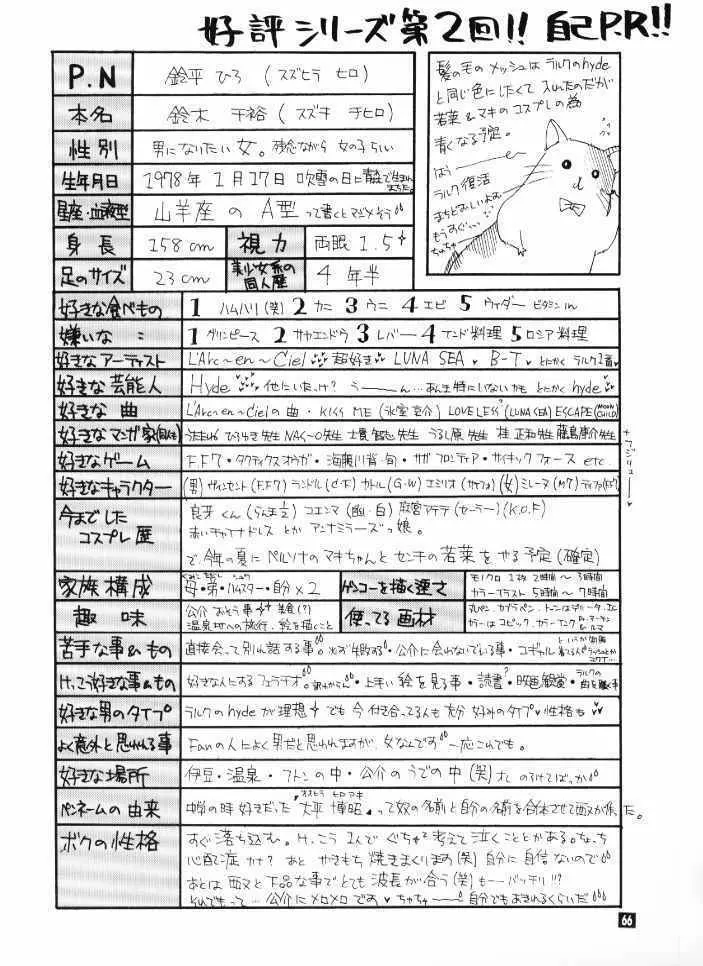 好評シリーズ第2回!! 自己P.R!!
P.N 鈴平 ひろ (スズヒラ ヒロ)
本名 鈴木 千裕 (スズキ チヒロ)
性別 男になりたい女。残念ながら 女の子らしい
生年月日 1978年 1月17日 吹雪の日に
星座・血液型 山羊座 の A型 って書くとマジメそう
身長 158cm 視力 両眼 1.5
足のサイズ 23cm 美少女系の同人歴 4年半
髪の毛の メッシュは ラルクのhyde
と同じ色にしたくて 入れたのだが
若葉&マキの コスプレの為
青くなる予定。
はぅー
ラルク復活
まちどおしいよぉ
もうすぐ…
ちゅちゅ
好きな食べもの 1 ハムハリ(笑) 2 カニ 3 ウニ 4 エビ 5 ウイダー ビタミン in
嫌いな 〃 1 グリンピース 2 サヤエンドウ 3 レバー 4 インド料理 5 ロシア料理
好きなアーティスト L'Arc~en~Ciel 超好き LUNA SEA B-T とにかく ラルク1番
好きな芸能人 Hyde 他にいたっけ? うーーん…あんま特にいないかも とにかく hyde
好きな 曲 L'Arc~en~Cielの曲・KISS ME (氷室京介) LOVELESS (LUNA SEA) ESCAPE (MOON CHILD)
好きなマンガ家(同人も) うるし原先生 桂 正和先生 藤島康介先生
好きなゲーム F.F.7・タクティクスオウガ・海腹川背・旬・サガ フロンティア・サイキックフォース etc
好きなキャラクター (男) ヴィンセント (F.F.7) ランドル (d・F) カトル (G・W) エミリオ (サイフォ) (女) ミレーヌ (M7) ティファ (F.F.7)
今までしたコスプレ歴 良牙くん (らんま1/2) コエンマ (幽・白) 麻宮アテナ (セーラー) (K.O.F)
赤いチャイナドレス とか アンナミラーズっ娘。
で 今年の夏に ペルソナの マキちゃんと センチの 若葉 を やる予定 (確定)
家族構成 母・弟・ハムスター・自分×2 ゲンコーを描く速さ モノクロ 1枚 2時間~3時間
カラーイラスト 5時間~7時間
趣味 公介 おそう事
温泉地への旅行、絵を描くこと
使ってる画材 丸ペン・カブラペン・トーンはデリータ・I.C
カラーはコピック・カラーインク
苦手な事&もの 直接会って別れ話する事。・公介に会えないでいる事・コギャル
けっこう好きな事&もの 好きな人にするフェラチオ。・上手い絵を見る事・読書・映画鑑賞・ラルクの曲を聴く事
好きな男のタイプ ラルクのhydeが理想 でも 今 付き合ってる人も 充分 好みのタイプ 性格も
よく意外と思われる事 Fanの人によく男だと思われますが、女なんです 一応これでも。
好きな場所 伊豆・温泉・フトンの中・公介のうでの中 (笑) のろけてばっか
ペンネームの由来 中学の時好きだった 大平 博昭 って奴の名前と自分の名前を合体させて西又が作った。
ボクの性格 すぐ落ち込む。けっこう 1人で ぐちゃぐちゃ考えて 泣くこととかある。
心配症 かな? あと やきもち 焼きまくります (笑) 自分に 自信 ないので
あとは 西又と 下品な事で とても 波長が合う (笑) もーーバッチリ!!?
それでもって… 公介に メロメロ です ちゃちゃー 自分でもあきれるくらいだ
66